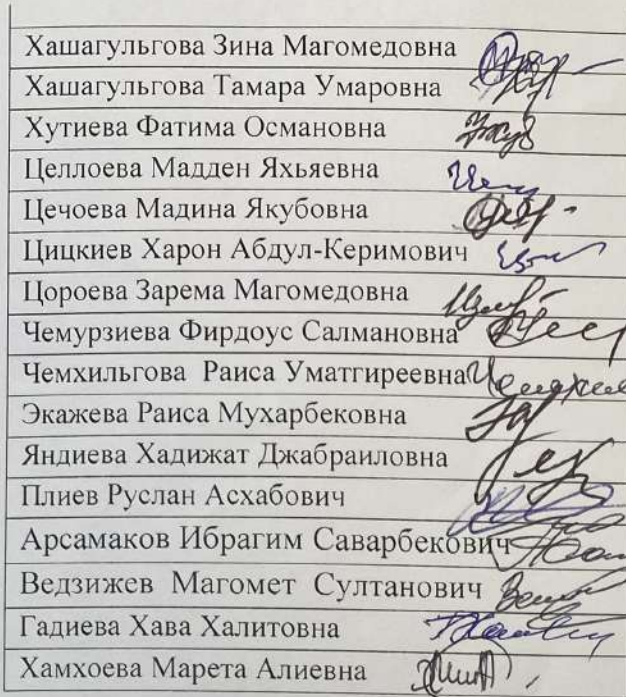 Хашагульгова Зина Магомедовна
Хашагульгова Тамара Умаровна
Хутиева Фатима Османовна
Целлоева Мадден Яхьяевна
Цечоева Мадина Якубовна
Цицкиев Харон Абдул-Керимович
Цороева Зарема Магомедовна
Чемурзиева Фирдоус Салмановна
Чемхильгова Раиса Уматгиреевна
Экажева Раиса Мухарбековна
Яндиева Хадижат Джабраиловна
Плиев Руслан Асхабович
Арсамаков Ибрагим Саварбекович
Ведзижев Магомет Султанович
Гадиева Хава Халитовна
Хамхоева Марета Алиевна